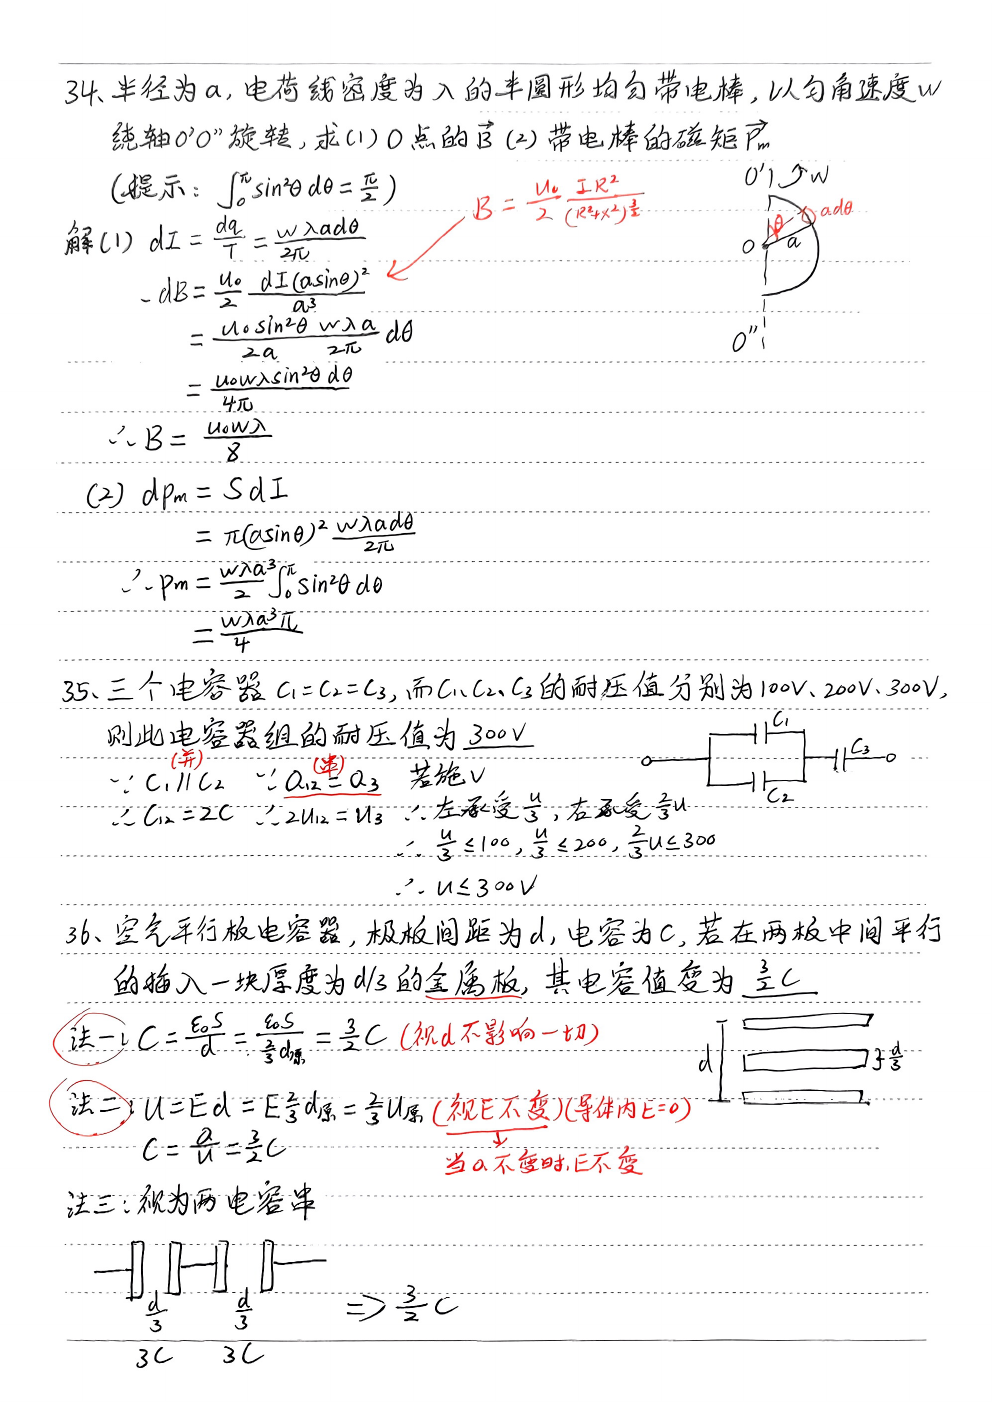 34、半径为a，电荷线密度为λ的半圆形均匀带电棒，以匀角速度w
绕轴O'O''旋转，求(1) O点的B⃗ (2) 带电棒的磁矩P⃗m
(提示：∫₀^π sin²θ dθ = π/2)
B = u₀/2 IR²/(R²+x²)^(3/2)
O' w
θ adθ
O a
O''
解(1) dI = dq/T = wλadθ/2π
dB = u₀/2 dI(asinθ)²/a³
= u₀sin²θ/2a wλa/2π dθ
= u₀wλsin²θdθ/4π
∴ B = u₀wλ/8
(2) dPm = SdI
= π(asinθ)² wλadθ/2π
∴ Pm = wλa³/2 ∫₀^π sin²θ dθ
= wλa³π/4
35、三个电容器 C₁=C₂=C₃，而C₁、C₂、C₃的耐压值分别为100V、200V、300V，
则此电容器组的耐压值为 300V
C₁ C₃ C₂
(并) (串)
∵ C₁//C₂ ∵ Q₁₂=Q₃ 若施V
∴ C₁₂=2C ∴ 2U₁₂=U₃ ∴ 左承受U/3，右承受2/3U
∴ U/3≤100，U/3≤200，2/3U≤300
∴ U≤300V
36、空气平行板电容器，极板间距为d，电容为C，若在两板中间平行
的插入一块厚度为d/3的金属板，其电容值变为 3/2C
法一：C = ε₀S/d = ε₀S/(2/3d原) = 3/2C (视d不影响一切)
d d/3
法二：U=Ed=E2/3d原=2/3U原 (视E不变)(导体内E=0)
C = Q/U = 3/2C
当Q不变时，E不变
法三：视为两电容串
d/3 d/3 => 3/2C
3C 3C